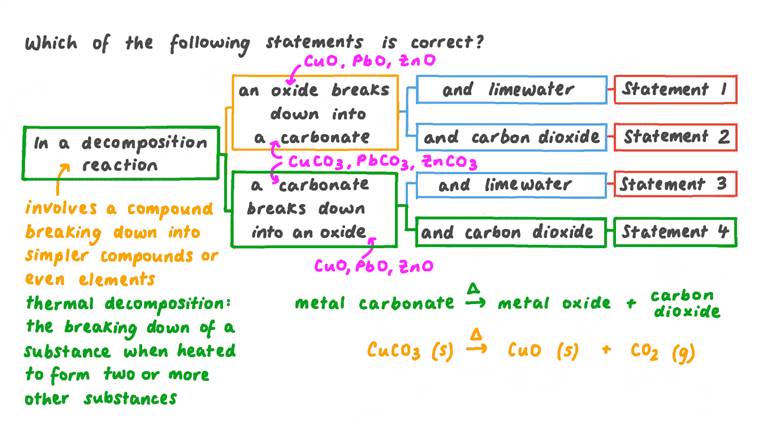 Which of the following statements is correct?
CuO, PbO, ZnO
an oxide breaks
down into
a carbonate
and limewater
Statement 1
and carbon dioxide
Statement 2
In a decomposition
reaction
CuCO₃, PbCO₃, ZnCO₃
a carbonate
breaks down
into an oxide
and limewater
Statement 3
and carbon dioxide
Statement 4
CuO, PbO, ZnO
involves a compound
breaking down into
simpler compounds or
even elements
thermal decomposition:
the breaking down of a
substance when heated
to form two or more
other substances
metal carbonate Δ→ metal oxide + carbon dioxide
CuCO₃ (s) Δ→ CuO (s) + CO₂ (g)